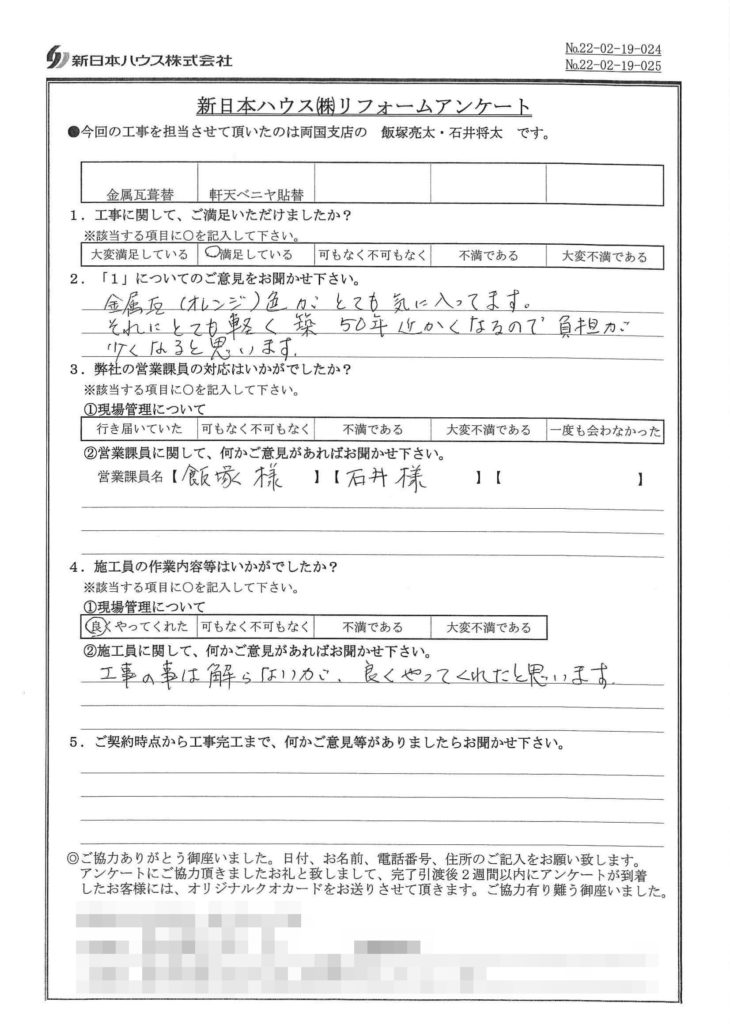 新日本ハウス株式会社
No.22-02-19-024
No.22-02-19-025
新日本ハウス㈱リフォームアンケート
●今回の工事を担当させて頂いたのは両国支店の 飯塚亮太・石井将太 です。
金属瓦葺替 軒天ベニヤ貼替
1．工事に関して、ご満足いただけましたか？
※該当する項目に○を記入して下さい。
大変満足している ○満足している 可もなく不可もなく 不満である 大変不満である
2．「1」についてのご意見をお聞かせ下さい。
金属瓦（オレンジ）色がとても気に入ってます。
それにとても軽く築50年近かくなるので負担が
少くなると思います。
3．弊社の営業課員の対応はいかがでしたか？
※該当する項目に○を記入して下さい。
①現場管理について
行き届いていた 可もなく不可もなく 不満である 大変不満である 一度も会わなかった
②営業課員に関して、何かご意見があればお聞かせ下さい。
営業課員名【飯塚 様 】【石井様 】【 】
4．施工員の作業内容等はいかがでしたか？
※該当する項目に○を記入して下さい。
①現場管理について
良くやってくれた 可もなく不可もなく 不満である 大変不満である
②施工員に関して、何かご意見があればお聞かせ下さい。
工事の事は解らないが、良くやってくれたと思います。
5．ご契約時点から工事完工まで、何かご意見等がありましたらお聞かせ下さい。
◎ご協力ありがとう御座いました。日付、お名前、電話番号、住所のご記入をお願い致します。
アンケートにご協力頂きましたお礼と致しまして、完了引渡後2週間以内にアンケートが到着
したお客様には、オリジナルクオカードをお送りさせて頂きます。ご協力有り難う御座いました。